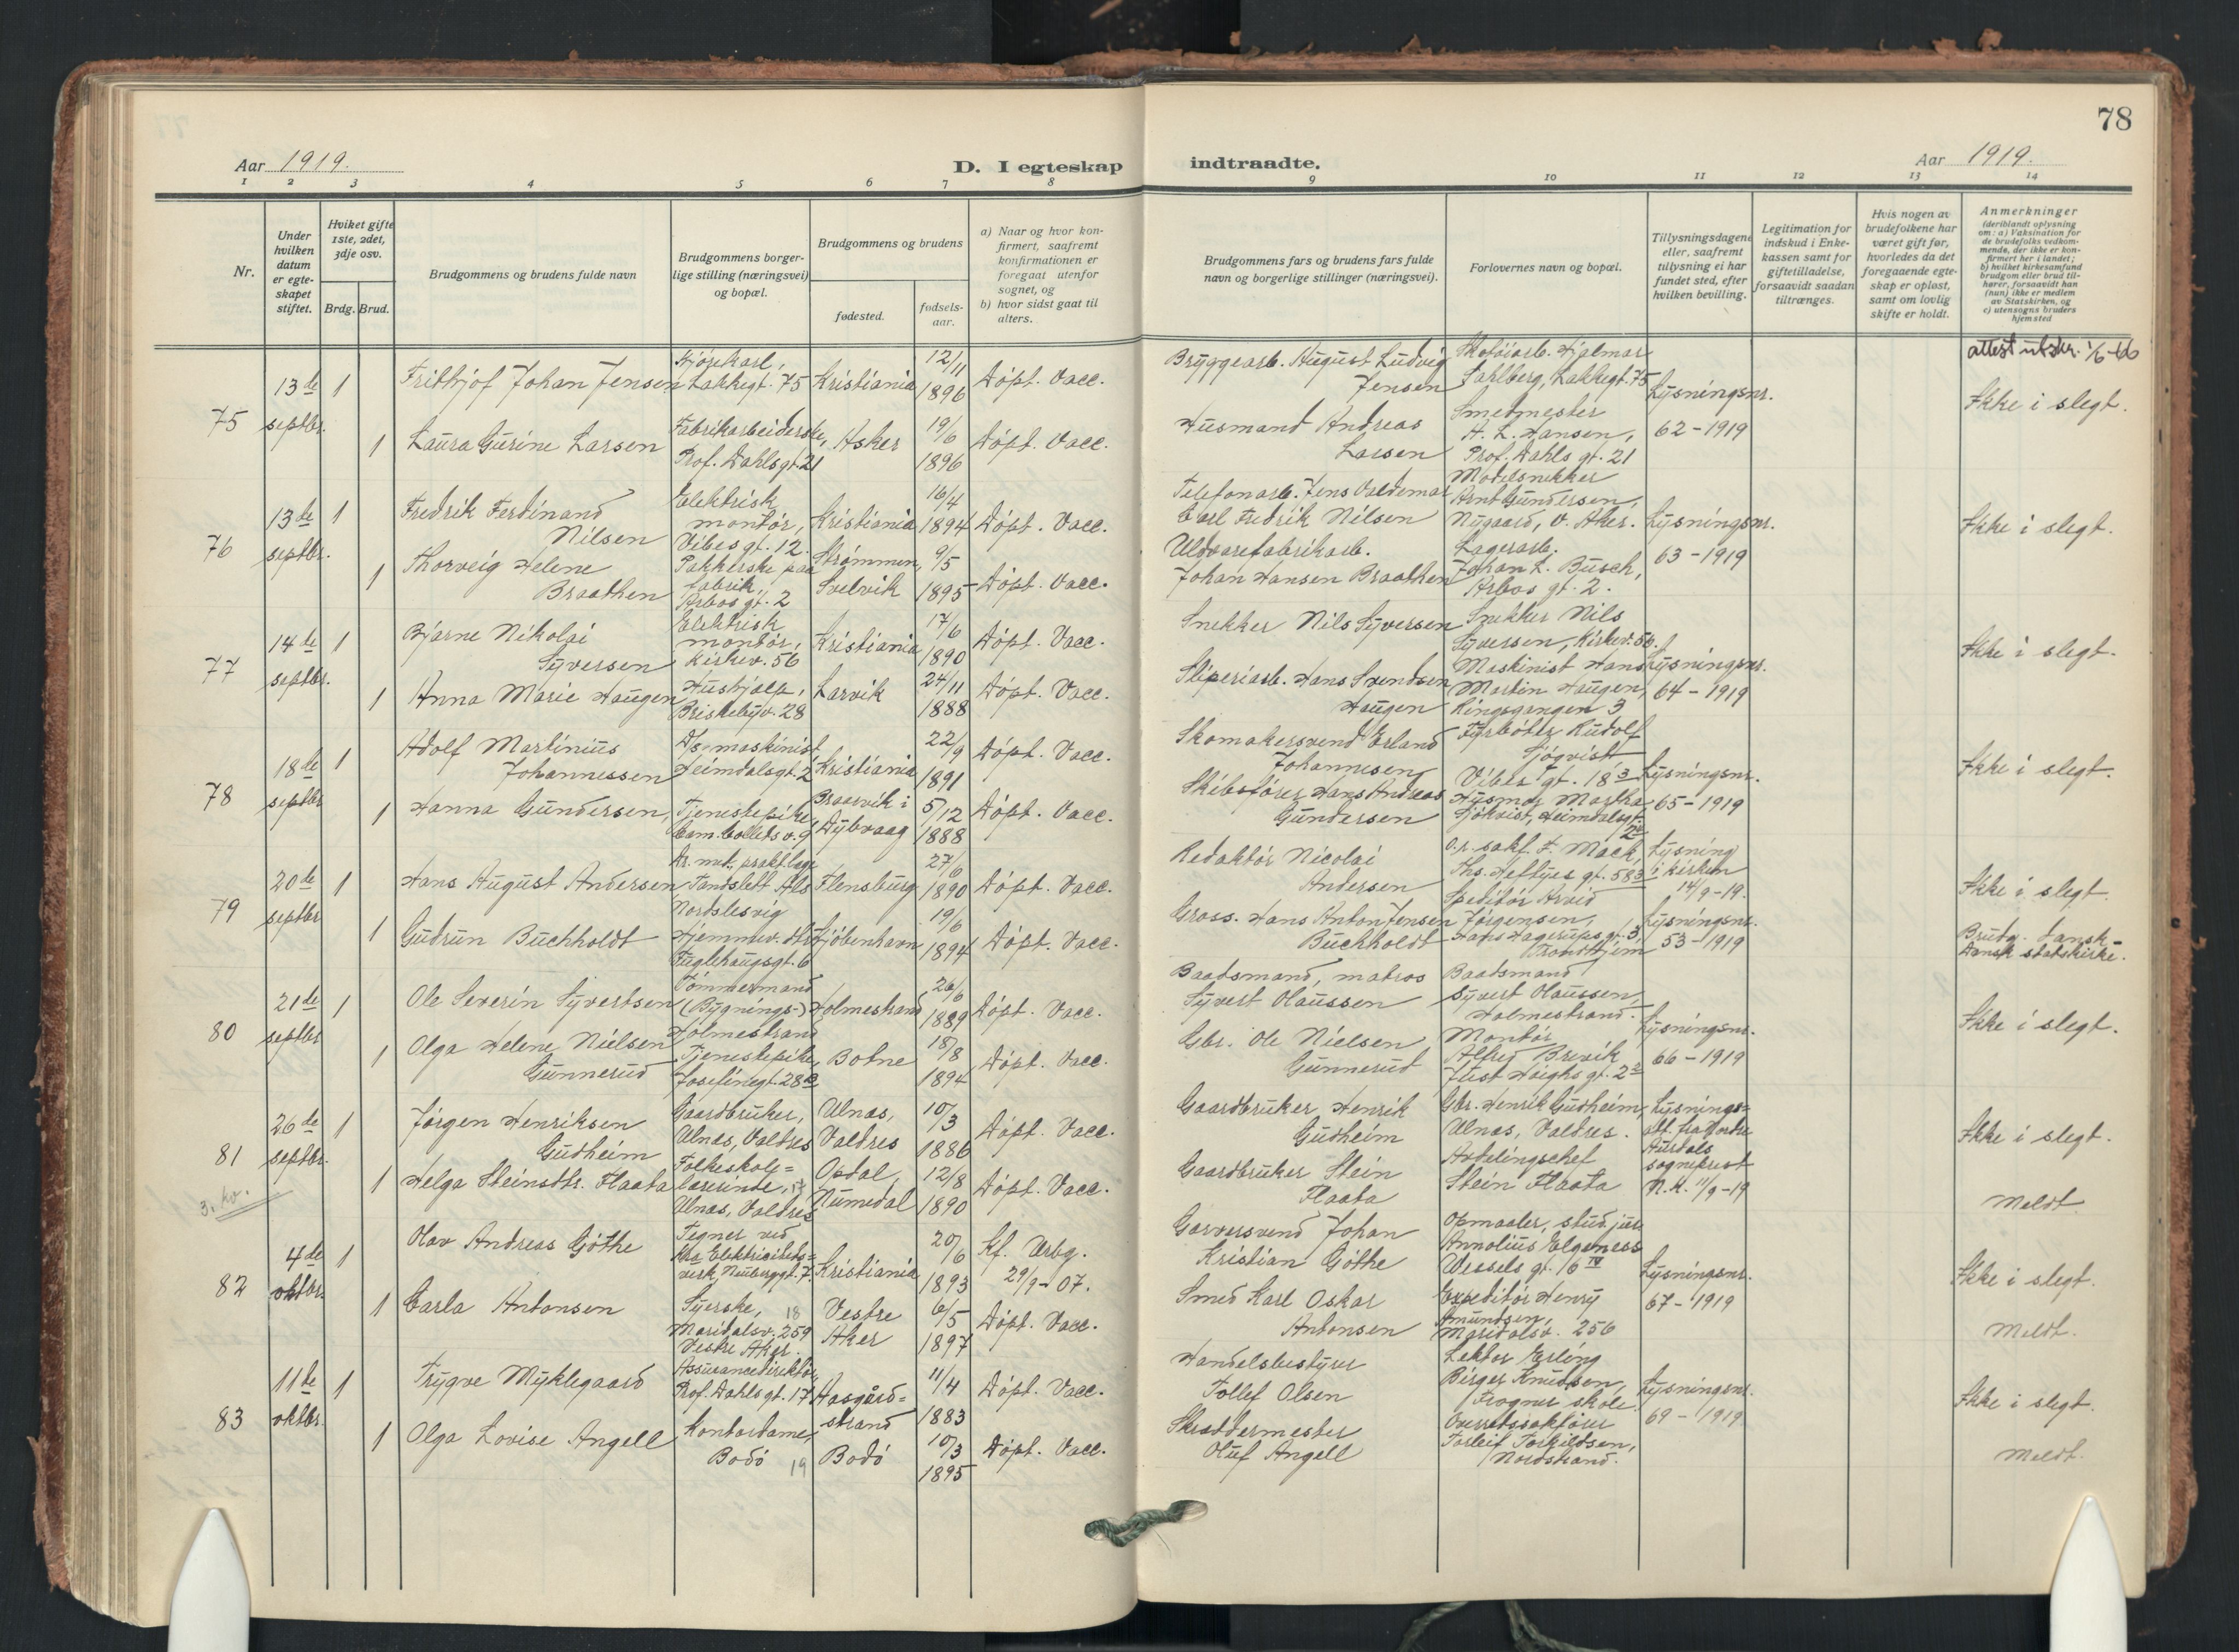 78
Aar 1919.
D. I egteskap indtraadte.
Aar 1919.
1 2 3 4 5 6 7 8 9 10 11 12 13 14
Nr.
Under hvilken datum er egte-skapet stiftet.
Hvilket gifte 1ste, 2det, 3dje osv.
Brdg. Brud.
Brudgommens og brudens fulde navn
Brudgommens borger-lige stilling (næringsvei) og bopæl.
Brudgommens og brudens
fødested.
fødsels-aar.
a) Naar og hvor kon-firmert, saafremt konfirmationen er foregaat utenfor sognet, og
b) hvor sidst gaat til alters.
Brudgommens fars og brudens fars fulde navn og borgerlige stillinger (næringsvei).
Forlovernes navn og bopæl.
Tillysningsdagene eller, saafremt tillysning ei har fundet sted, efter hvilken bevilling.
Legitimation for indskud i Enke-kassen samt for giftetilladelse, forsaavidt saadan tiltrænges.
Hvis nogen av brudefolkene har været gift før, hvorledes da det foregaaende egte-skap er opløst, samt om lovlig skifte er holdt.
Anmerkninger
(deriblandt oplysning om: a) Vaksination for de brudefolks vedkom-mende, der ikke er kon-firmert her i landet; b) hvilket kirkesamfund brudgom eller brud til-hører, forsaavidt han (hun) ikke er medlem av Statskirken, og c) utensogns bruders hjemsted
75
13de septbr.
1
Frithjof Johan Jensen
Kjørekarl, Lakkegt. 75
Kristiania
12/11 1896
Døpt. Vacc.
Bryggearb. August Ludvig Jensen
Skotøiarb. Hjalmar Dahlberg, Lakkegt. 75
Lysningsnr. 62 - 1919
attest utskr. 1/6-66
Ikke i slegt.
1
Laura Gurine Larsen
Fabrikarbeiderske, Prof. Dahls gt. 21
Asker
19/6 1896
Døpt. Vacc.
Husmand Andreas Larsen
Smedmester A. L. Hansen, Prof. Dahls gt. 21
76
13de septbr.
1
Fredrik Ferdinand Nilsen
Elektrisk montør, Vibes gt. 12.
Kristiania
16/4 1894
Døpt. Vacc.
Telefonarb. Jens Valdemar Carl Fredrik Nilsen
Modelsnekker Arnt Gundersen, Nygaard, V. Aker.
Lysningsnr. 63 - 1919
Ikke i slegt.
1
Thorveig Helene Braathen
Pakkerske paa fabrik, Arbos gt. 2
Strømmen, Svelvik
9/5 1895
Døpt. Vacc.
Uldvarefabrikarb. Johan Hansen Braathen
Lagerarb. Johan L. Busch, Arbos gt. 2.
77
14de septbr.
1
Bjarne Nikolai Syversen
Elektrisk montør, Kirkev. 56
Kristiania
17/6 1890
Døpt. Vacc.
Snekker Nils Syversen
Snekker Nils Syversen, Kirkev. 56.
Lysningsnr. 64 - 1919
Ikke i slegt.
1
Anna Marie Haugen
Hushjælp, Briskebyv. 28
Larvik
24/11 1888
Døpt. Vacc.
Sliperiarb. Hans Svendsen Haugen
Maskinist Hans Martin Haugen, Ringsgangen 3
78
18de septbr
1
Adolf Martinius Johannessen
D/s maskinist, Heimdalsgt. 2
Kristiania
22/9 1891
Døpt. Vacc.
Skomakersvend Erland Johannesen
Fyrbøter Rudolf Sjøqvist Vibes gt. 18 3
Lysningsnr. 65 - 1919
Ikke i slegt.
1
Hanna Gundersen,
Tjenestepike, Cam. Colletts v. 9
Braarvik i Dybvaag
5/12 1888
Døpt. Vacc.
Skibsfører Hans Andreas Gundersen
Husmor Martha Sjøkvist, Heimdalsgt. 2
79
20de septbr
1
Hans August Andersen
Dr. med., prakt. læge Tandslett Als Nordslesvig
Flensburg
27/6 1890
Døpt. Vacc.
Redaktør Nicolai Andersen
O.r. sakf. F. Mack, Ths. Heftyes gt. 58 3
Lysning i kirken 14/9-19.
Ikke i slegt.
1
Gudrun Buchholdt
Hjemmev. dtr. Fuglehaugsgt. 6
Kjøbenhavn
19/6 1894
Døpt. Vacc.
Gross. Hans Anton Jensen Buchholdt
Speditør Arvid Jørgensen, Hans Hagerups gt. 3, Trondhjem
Lysningsnr. 53 - 1919
Brudg. dansk - Dansk statskirke.
80
21de septbr
1
Ole Severin Syvertsen
Tømmermand (Bygnings-) Holmestrand
Holmestrand
26/6 1889
Døpt. Vacc.
Baadsmand, matros Syvert Olaussen
Baadsmand Syvert Olaussen, Holmestrand.
Lysningsnr. 66 - 1919
Ikke i slegt.
1
Olga Helene Nielsen Gunnerud
Tjenestepike, Josefinegt. 28 a
Botne
18/8 1894
Døpt. Vacc.
Gbr. Ole Nielsen Gunnerud
Montør Alfred Brevik Just Høighs gt. 2
81
3. kv.
26de septbr.
1
Jørgen Henriksen Gudheim
Gaardbruker, Ulnæs, Valdres
Ulnæs, Valdres
10/3 1886
Døpt. Vacc.
Gaardbruker Henrik Gudheim
Gbr. Henrik Gudheim, Ulnæs, Valdres.
Lysnings= att. fra Nordre Aurdals sogneprest N.H. 11/9-19
Ikke i slegt.
1
Helga Steinsdtr. Flaata
Folkeskole= lærerinde, Ulnæs, Valdres
Opdal, Numedal
12/8 1890
Døpt. Vacc.
Gaardbruker Stein Flaata
Avdelingschef Stein Flaata
Meldt.
82
4de oktbr.
1
Olav Andreas Gjøthe
Tegner ved Kra Elektricitets= verk, Neuberggt. 7
Kristiania
20/6 1893
Kf. Urbg. 29/9-07.
Garversvend Johan Kristian Gøthe
Opmaaler, stud. jur. Annolius Elgenæss Wessels gt. 16 IV
Lysningsnr. 67 - 1919
Ikke i slegt.
1
Carla Antonsen
Syerske, 18 Maridalsv. 259 Vestre Aker.
Vestre Aker
6/5 1897
Døpt. Vacc.
Smed Karl Oskar Antonsen
Expeditør Henry Amundsen, Maridalsv. 256
Meldt.
83
11de oktbr.
1
Trygve Myklegaard
Assurancedirektør, Prof. Dahls gt. 17
Aasgård= strand
11/4 1883
Døpt. Vacc.
Handelsbestyrer Tollef Olsen
Lektor Erling Birger Knudsen, Frogner skole.
Lysningsnr. 69 - 1919
Ikke i slegt.
1
Olga Lovise Angell
Kontordame, Bodø 19
Bodø
10/3 1895
Døpt. Vacc.
Skreddermester Oluf Angell
Overretssakfører Torleif Torkildsen, Nordstrand.
Meldt.